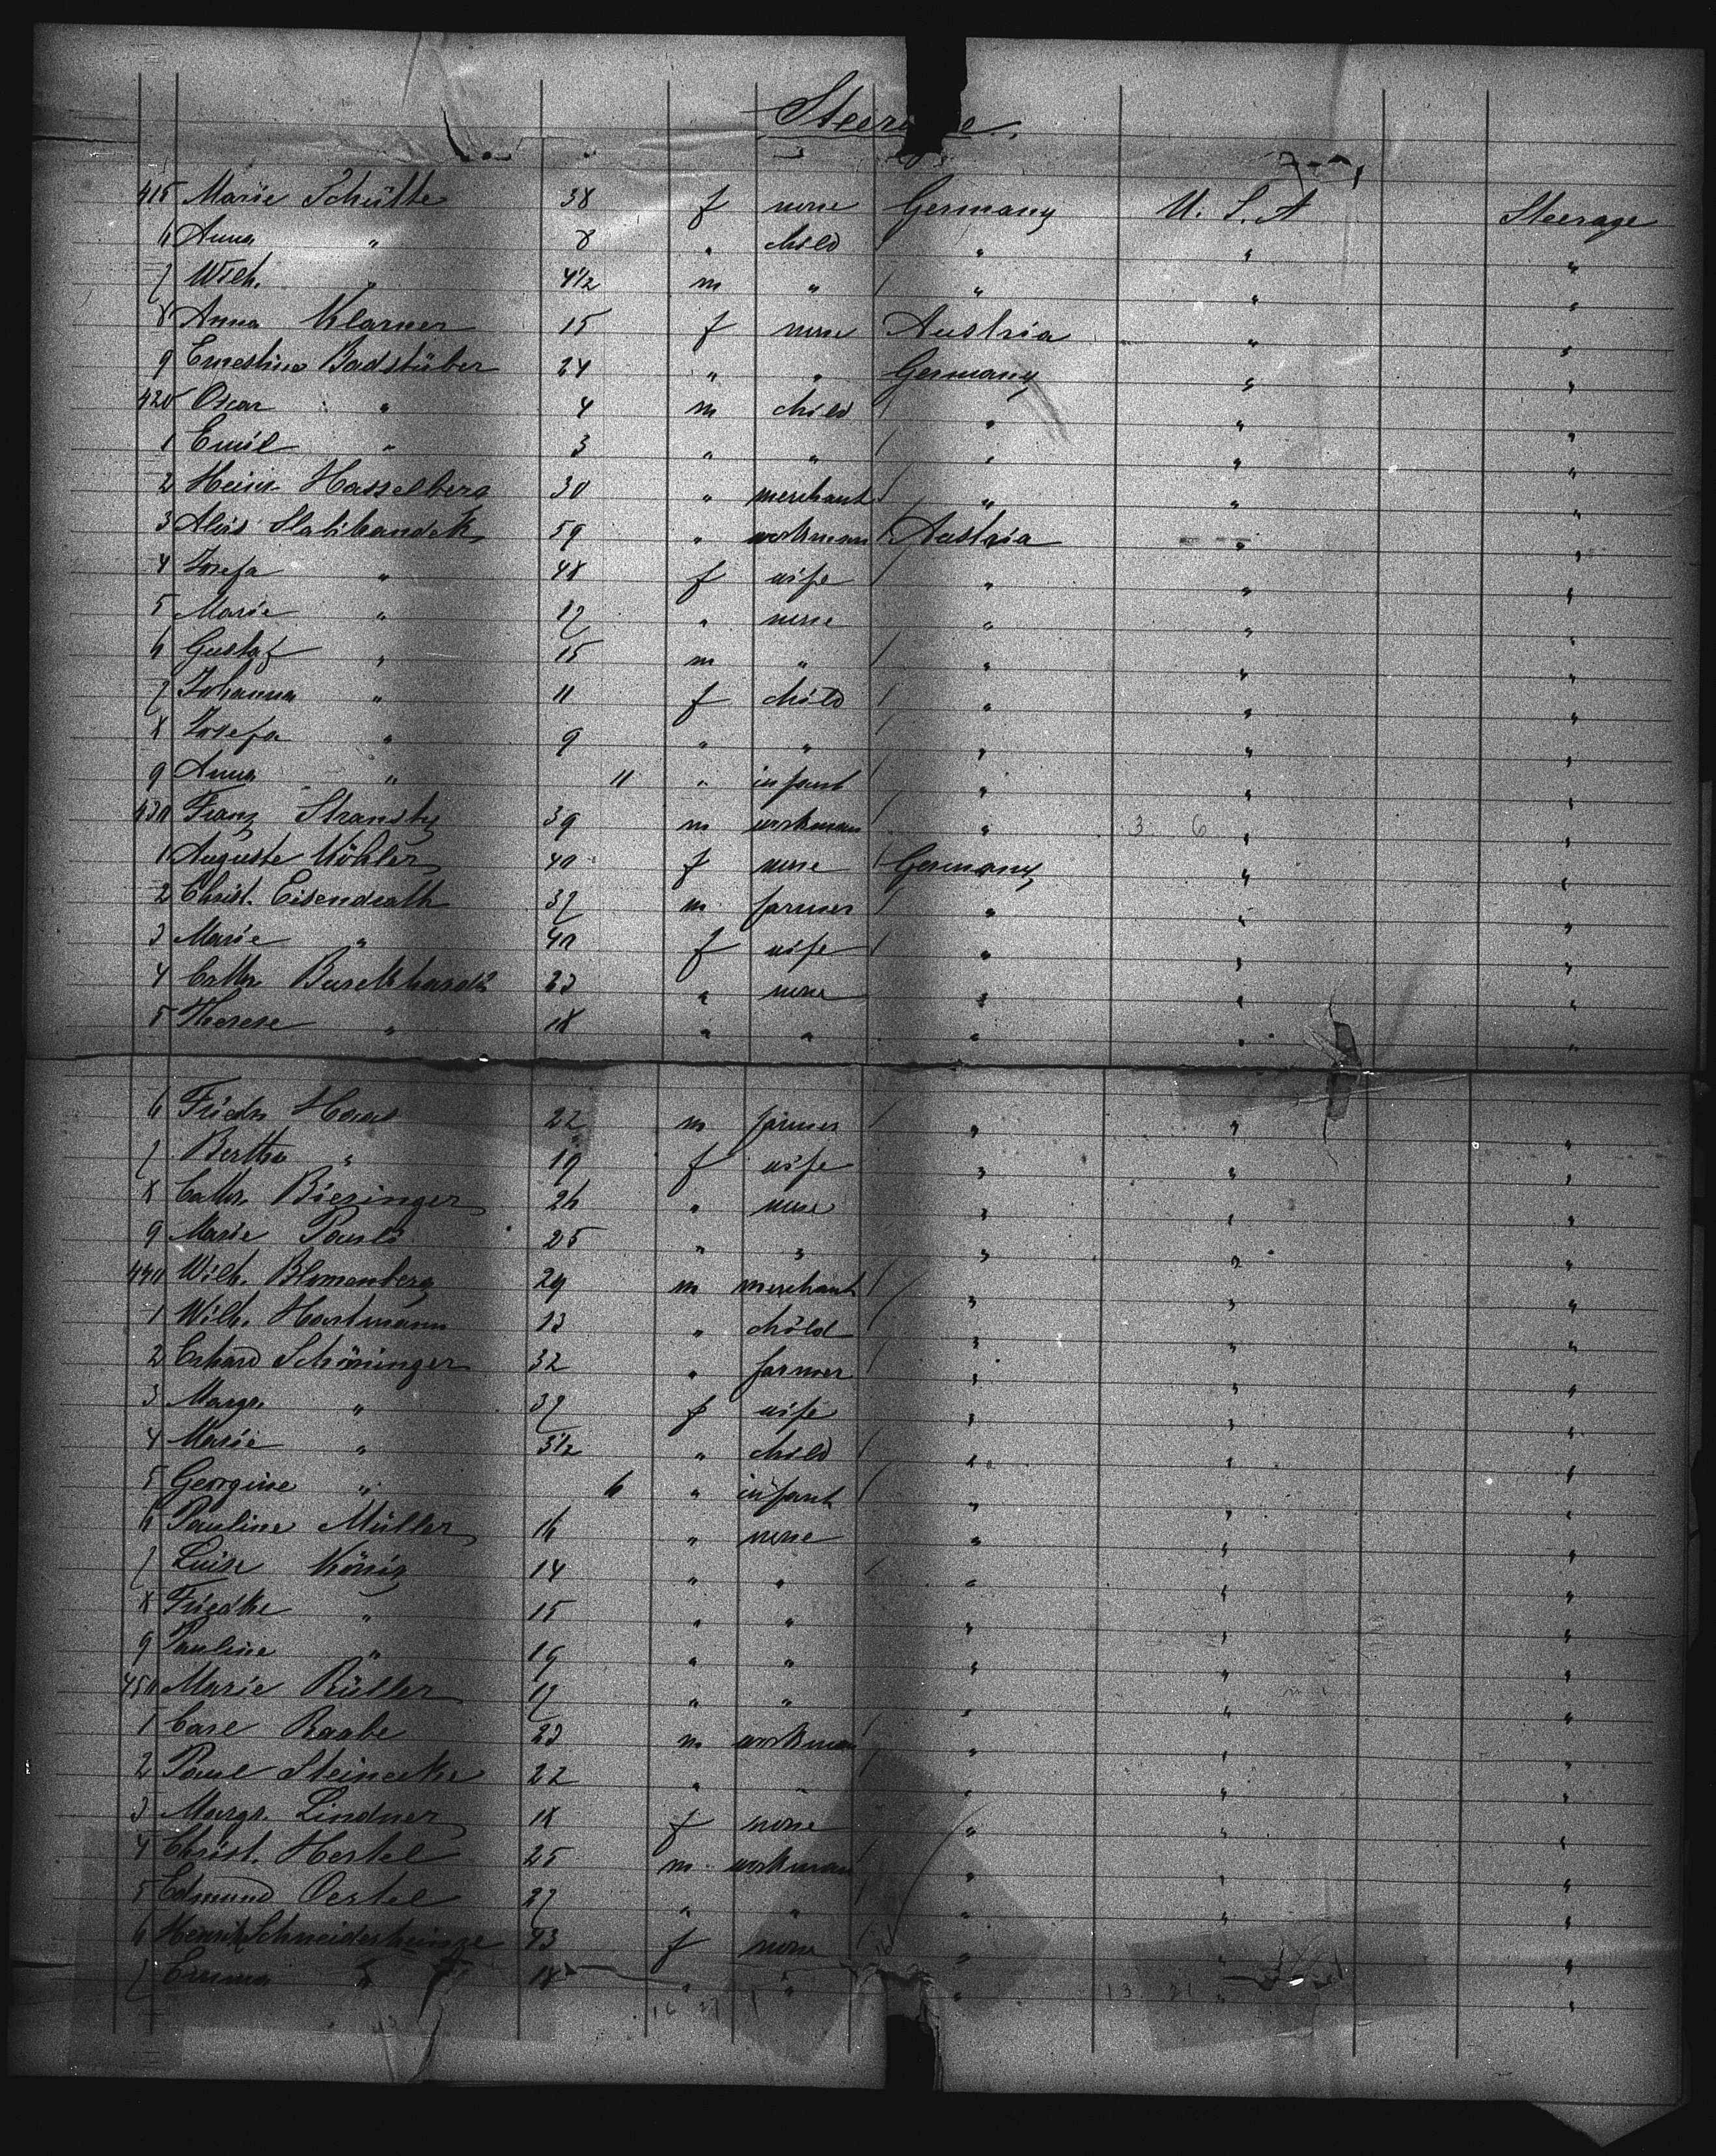 Steerage
415 Marie Schütte 38 f none Germany U. S. A Steerage
6 Anna " 8 " child " " "
7 Wilh. " 4 1/2 m " " " "
8 Anna Klarner 15 f none Austria " "
9 Ernestine Badstüber 24 " " Germany " "
420 Oscar " 4 m child " " "
1 Emil " 3 " " " " "
2 Heinr. Hasselberg 30 " merchant " " "
3 Alois 59 " workman Austria " "
4 Josefa " 48 f wife " " "
5 Marie " 17 " none " " "
6 Gustaf " 15 m " " " "
7 Johanna " 11 f child " " "
8 Josefa " 9 " " " " "
9 Anna " 11 " infant " " "
430 Franz Stransky 39 m workman " " "
1 Auguste Köhler 40 f none Germany " "
2 Christ. Eisendrath 37 m farmer " " "
3 Marie " 40 f wife " " "
4 Cathr. Burckhardt 23 " none " " "
5 Therese " 18 " " " " "
6 Friedr. 22 m farmer " " "
7 Bertha " 19 f wife " " "
8 Cathr. Bieringer 26 " none " " "
9 Marie Pauli 25 " " " " "
440 Wilh. Blumenberg 29 m merchant " " "
1 Wilh. Hartmann 13 " child " " "
2 Erhard Schöninger 32 " farmer " " "
3 Margr. " 37 f wife " " "
4 Marie " 3 1/2 " child " " "
5 Georgine " 6 " infant " " "
6 Pauline Müller 16 " none " " "
7 Luise König 14 " " " " "
8 Friedke " 15 " " " " "
9 Pauline " 19 " " " " "
450 Marie Rüller 17 " " " " "
1 Carl Raabe 23 m workman " " "
2 Paul Steinecke 22 " " " " "
3 Margr. Lindner 18 f none " " "
4 Christ. Hertel 25 m workman " " "
5 Edmund Oertel 27 " " " " "
6 43 f none " " "
7 Emma " 18 " " " " "